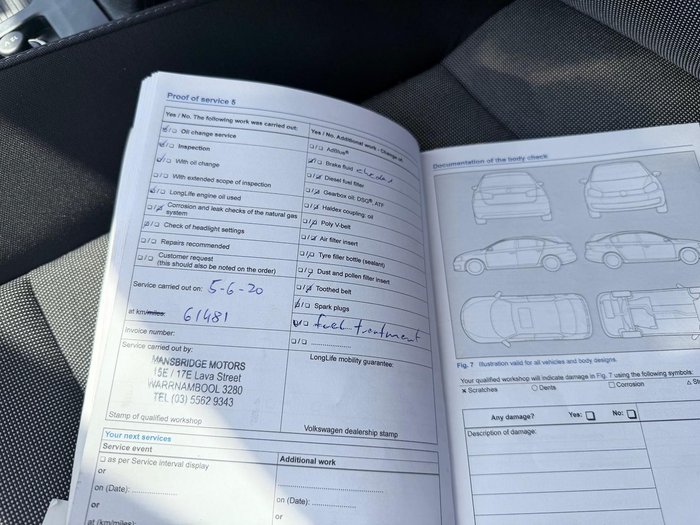 Proof of service 5
Yes / No. The following work was carried out:
Oil change service
Inspection
With oil change
With extended scope of inspection
LongLife engine oil used
Corrosion and leak checks of the natural gas
system
Check of headlight settings
Repairs recommended
Customer request
(this should also be noted on the order)
Service carried out on: 5-6-20
at km/miles: 61481
Invoice number:
Service carried out by:
MANSBRIDGE MOTORS
15E / 17E Lava Street
WARRNAMBOOL 3280
TEL (03) 5562 9343
Stamp of qualified workshop
Yes / No. Additional work - Change of
AdBlue®
Brake fluid
Diesel fuel filter
Gearbox oil: DSG®, ATF
Haldex coupling: oil
Poly V-belt
Air filter insert
Tyre filler bottle (sealant)
Dust and pollen filter insert
Toothed belt
Spark plugs
fuel treatment
LongLife mobility guarantee:
Volkswagen dealership stamp
Your next services
Service event
as per Service interval display
or
on (Date):
or
at (km/miles)
Additional work
on (Date):
or
Documentation of the body check
Fig. 7 Illustration valid for all vehicles and body designs.
Your qualified workshop will indicate damage in Fig. 7 using the following symbols:
x Scratches O Dents □ Corrosion Δ
Any damage? Yes: No:
Description of damage: